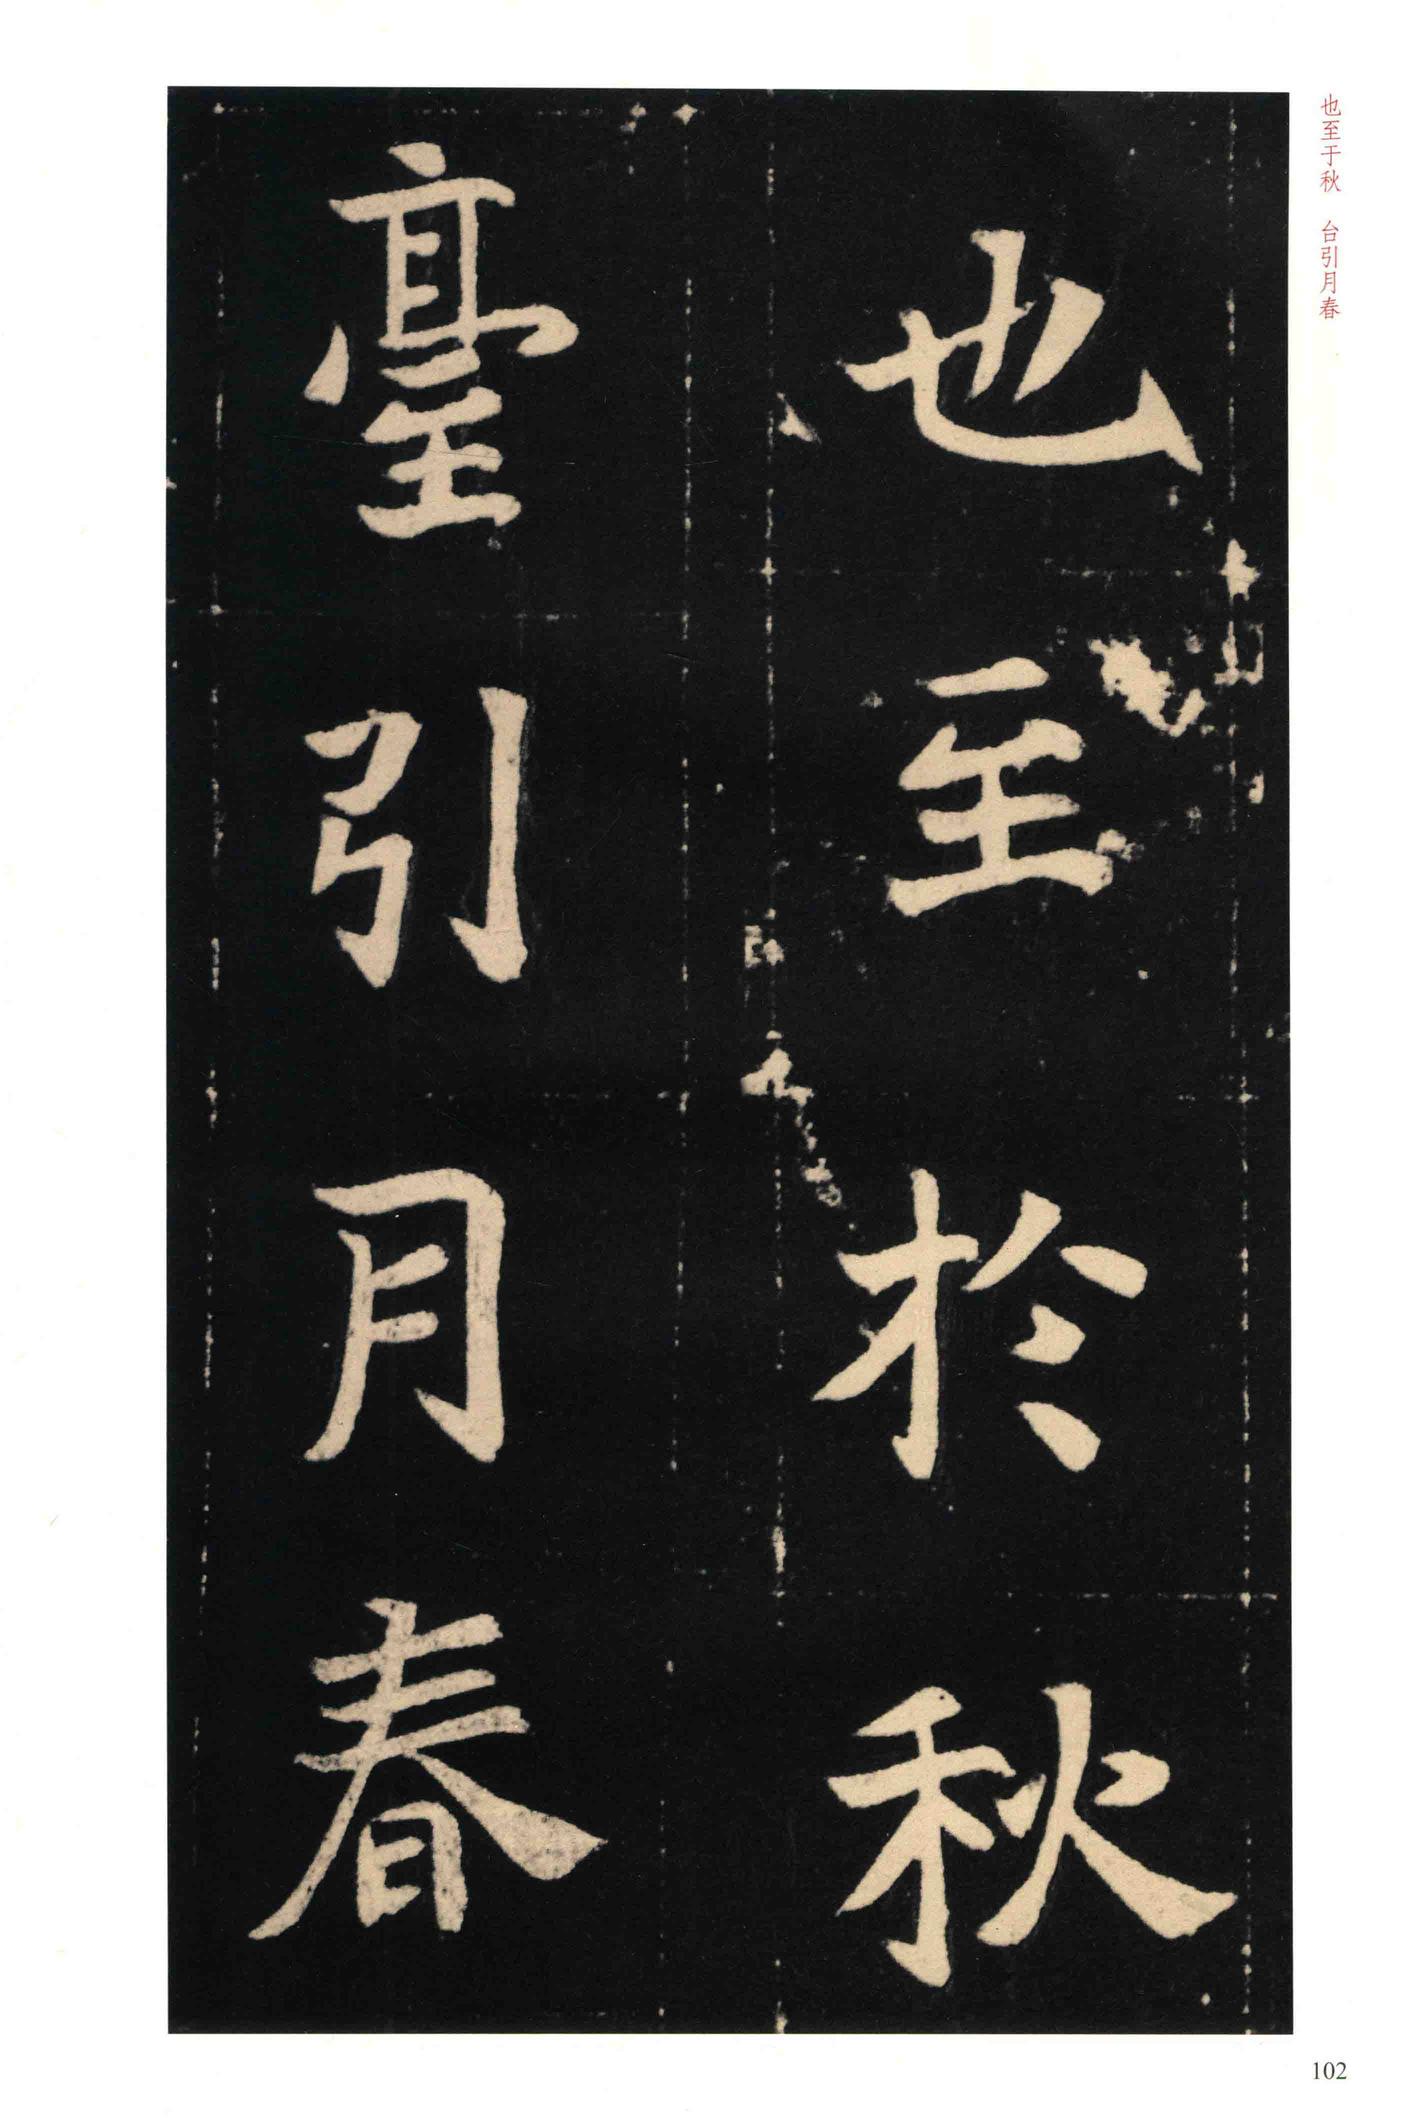 也至於秋
臺引月春
也至于秋　台引月春
102